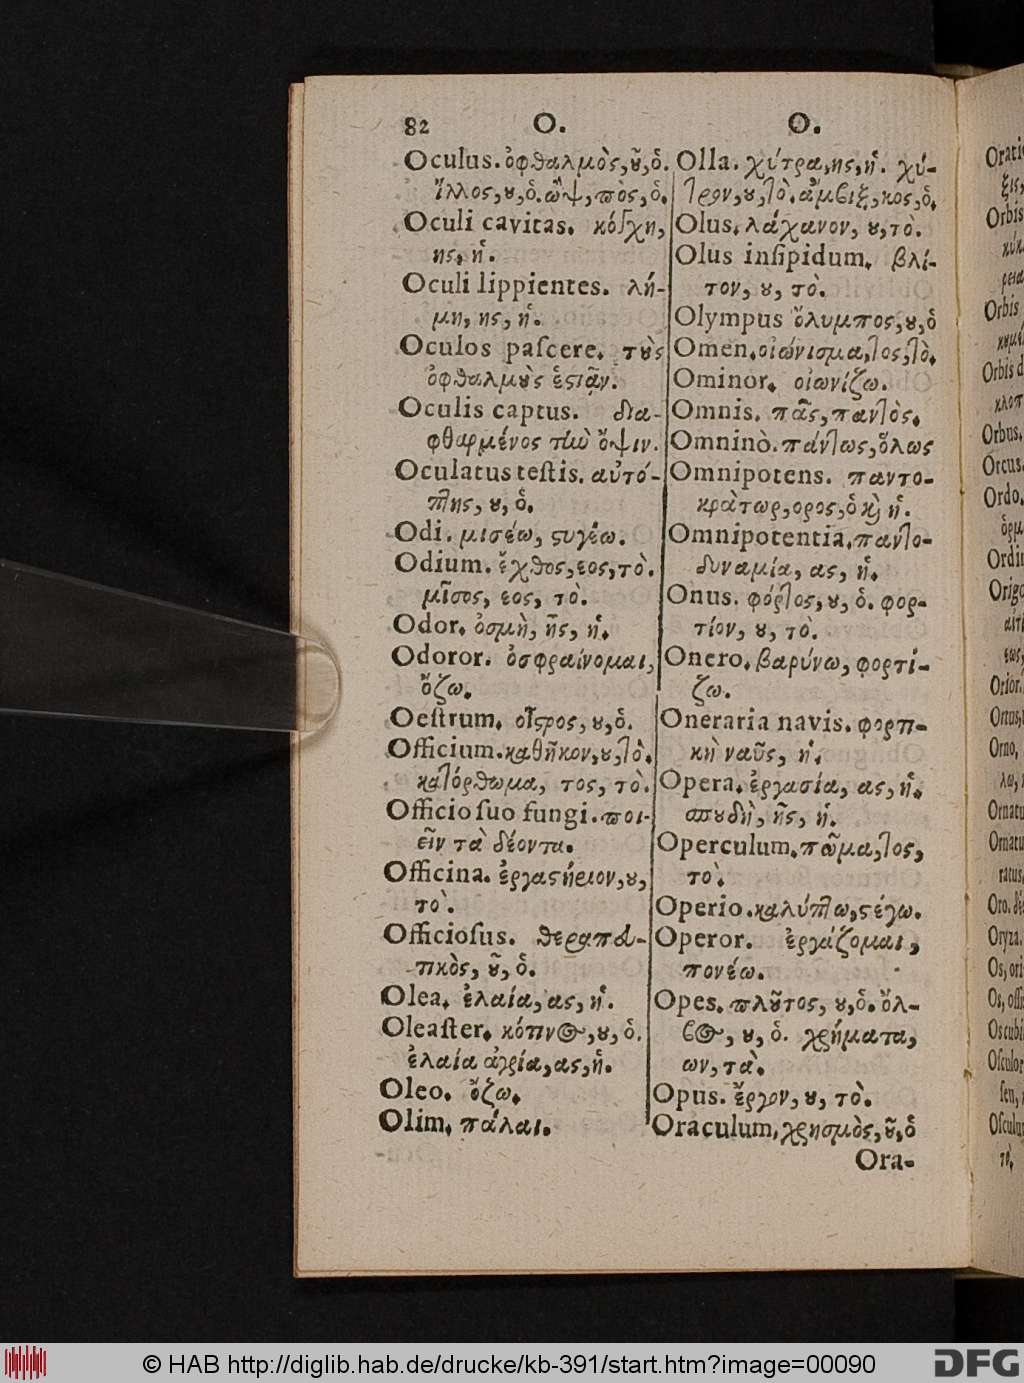 82 O. O.
Oculus. ὀφθαλμὸς, ȣ͂, ὁ.
ἴλλος, ȣ, ὁ. ὢψ, ϖὸς, ὁ.
Oculi cavitas. κόγχη,
ης, ἡ.
Oculi lippientes. λή-
μη, ης, ἡ.
Oculos paſcere. τȣ̀ς
ὀφθαλμȣ̀ς ἑϛιᾶν.
Oculis captus. δια-
φθαρμένος τὴν ὄψιν.
Oculatus teſtis. αὐτό-
πτης, ȣ, ὁ.
Odi. μισέω, ϛυγέω.
Odium. ἔχθος, εος, τὸ.
μῖσος, εος, τὸ.
Odor. ὀσμὴ, ῆς, ἡ.
Odoror. ὀσφραίνομαι,
ὄζω.
Oeſtrum. οἶϛρος, ȣ, ὁ.
Officium. καθῆκον, ȣ, τὸ.
κατόρθωμα, τος, τὸ.
Officio ſuo fungi. ϖοι-
εῖν τὰ δέοντα.
Officina. ἐργαϛήριον, ȣ,
τὸ.
Officioſus. θεραπευ-
τικὸς, ȣ͂, ὁ.
Olea. ἐλαία, ας, ἡ.
Oleaſter. κότινος, ȣ, ὁ.
ἐλαία ἀγρία, ας, ἡ.
Oleo. ὄζω.
Olim. πάλαι.
Olla. χύτρα, ης, ἡ. χύ-
τρον, ȣ, τὸ. ἄμβιξ, κος, ὁ.
Olus. λάχανον, ȣ, τὸ.
Olus inſipidum. βλί-
τον, ȣ, τὸ.
Olympus ὄλυμπος, ȣ, ὁ
Omen. οἰώνισμα, τος, τὸ.
Ominor. οἰωνίζω.
Omnis. πᾶς, παντὸς.
Omninò. πάντως, ὅλως
Omnipotens. παντο-
κράτωρ, ορος, ὁ ϗ̀ ἡ.
Omnipotentia. παντο-
δυναμία, ας, ἡ.
Onus. φόρτος, ȣ, ὁ. φορ-
τίον, ȣ, τὸ.
Onero. βαρύνω, φορτί-
ζω.
Oneraria navis. φορτι-
κὴ ναῦς, ἡ.
Opera. ἐργασία, ας, ἡ.
σπȣδὴ, ῆς, ἡ.
Operculum. πῶμα, τος,
τὸ.
Operio. καλύπτω, ϛέγω.
Operor. ἐργάζομαι,
πονέω.
Opes. πλȣ͂τος, ȣ, ὁ. ὄλ-
βος, ȣ, ὁ. χρήματα,
ων, τὰ.
Opus. ἔργον, ȣ, τὸ.
Oraculum, χρησμὸς, ȣ͂, ὁ
Ora-
Orbis
Orbis
Orbis d
κλοπ
Orbus.
Orcus.
Ordo.
Oryza.
© HAB http://diglib.hab.de/drucke/kb-391/start.htm?image=00090
DFG